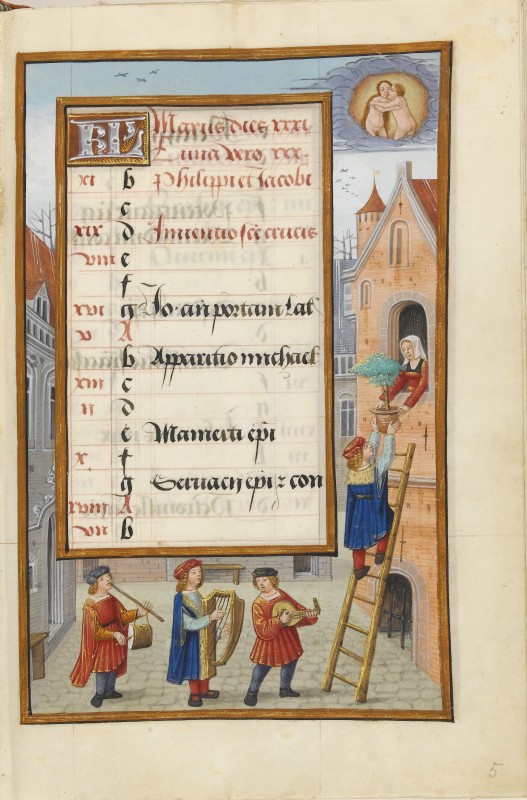 KL Maius dies xxxi
Luna vero xxx
xi b Philippi et Jacobi
c
xix d Inuencio scē crucis
viii e
f
xvi g Jo. añ portam Lat
v A
b Apparitio michael
xiii c
ii d
e Mamerti epī
x f
g Seruacij epī z con
xviii A
vii b
5